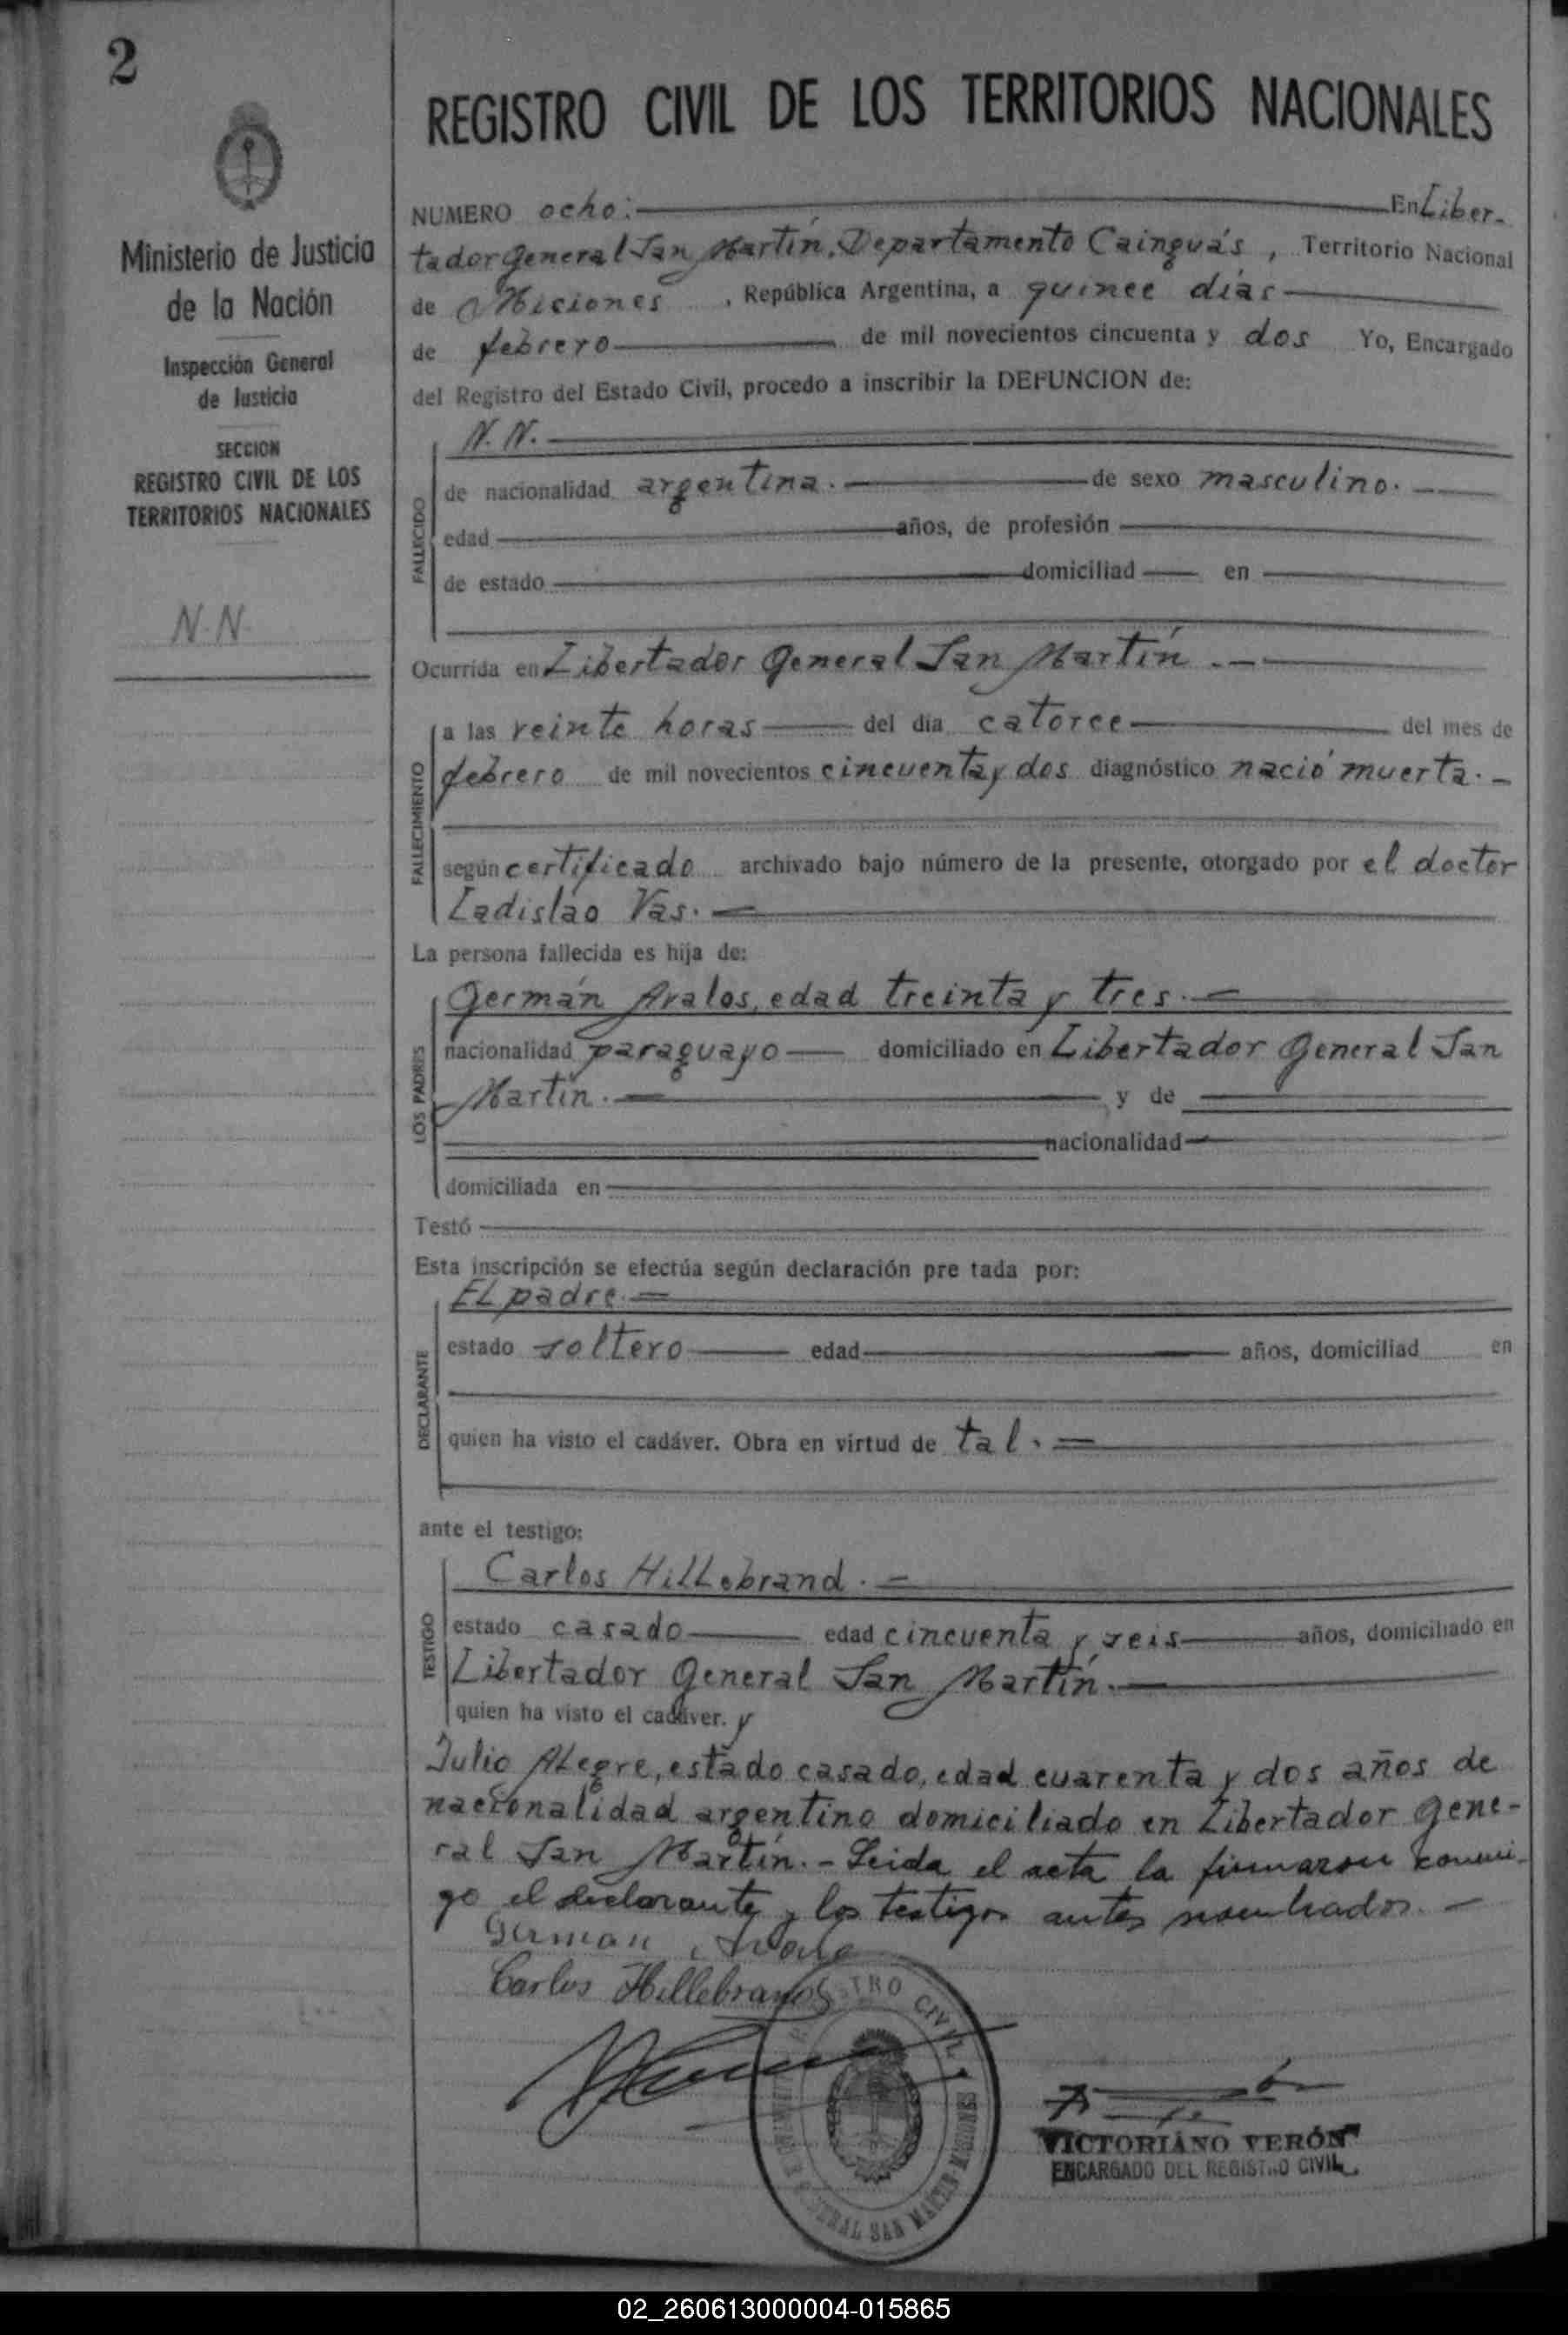 2
REGISTRO CIVIL DE LOS TERRITORIOS NACIONALES
Ministerio de Justicia
de la Nación
Inspección General
de Justicia
SECCION
REGISTRO CIVIL DE LOS
TERRITORIOS NACIONALES
N.N.
NUMERO ocho: En Liber-
tador General San Martín, Departamento Cainguás, Territorio Nacional
de Misiones, República Argentina, a quince días
de febrero de mil novecientos cincuenta y dos Yo, Encargado
del Registro del Estado Civil, procedo a inscribir la DEFUNCION de:
FALLECIDO
N. N.
de nacionalidad argentina. de sexo masculino.
edad años, de profesión
de estado domiciliad en
Ocurrida en Libertador General San Martín
FALLECIMIENTO
a las veinte horas del día catorce del mes de
febrero de mil novecientos cincuenta y dos diagnóstico nació muerta.-
según certificado archivado bajo número de la presente, otorgado por el doctor
Ladislao Vas.
La persona fallecida es hija de:
LOS PADRES
Germán Avalos, edad treinta y tres.
nacionalidad paraguayo domiciliado en Libertador General San
Martín. y de
nacionalidad
domiciliada en
Testó
Esta inscripción se efectúa según declaración pre tada por:
DECLARANTE
El padre.
estado soltero edad años, domiciliad en
quien ha visto el cadáver. Obra en virtud de tal.
ante el testigo:
TESTIGO
Carlos Hillebrand.
estado casado edad cincuenta y seis años, domiciliado en
Libertador General San Martín.
quien ha visto el cadáver. y
Julio Alegre, estado casado, edad cuarenta y dos años de
nacionalidad argentino domiciliado en Libertador Gene-
ral San Martín.- Leida el acta la firmaron conmi-
go el declarante y los testigos antes nombrados.-
German Avalo
Carlos Hillebrand
REGISTRO CIVIL
LIBERTADOR GENERAL SAN MARTIN-MISIONES
VICTORIANO VERÓN
ENCARGADO DEL REGISTRO CIVIL
02_260613000004-015865